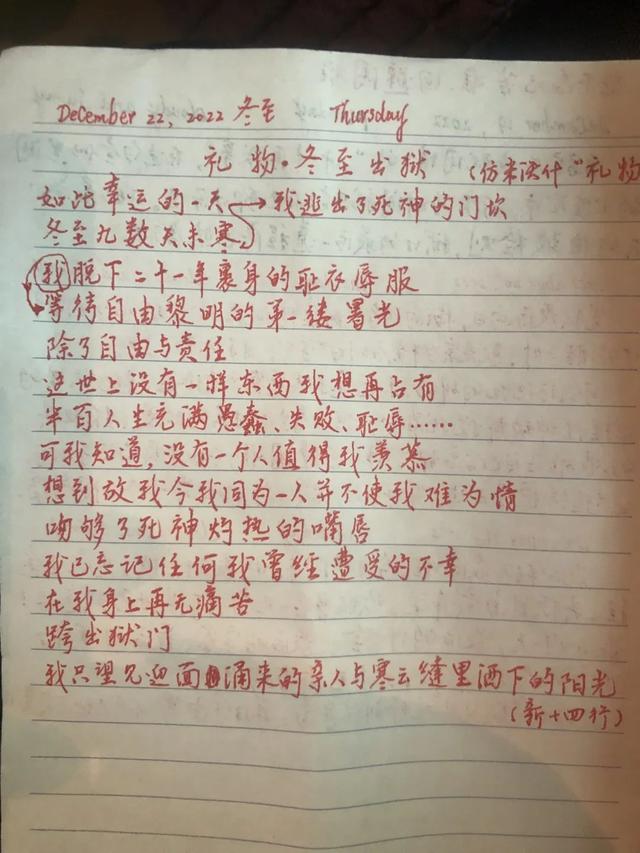 December 22, 2022 冬至 Thursday
礼物·冬至出狱 (仿米沃什“礼物
如此幸运的一天→我逃出了死神的门坎
冬至九数天未寒,
我脱下二十一年裹身的耻衣辱服
等待自由黎明的第一缕曙光
除了自由与责任
这世上没有一样东西我想再占有
半百人生充满愚蠢、失败、耻辱……
可我知道,没有一个人值得我羡慕
想到故我今我同为一人并不使我难为情
吻够了死神灼热的嘴唇
我已忘记任何我曾经遭受的不幸
在我身上再无痛苦
跨出狱门
我只望见迎面涌来的亲人与寒云缝里洒下的阳光
(新十四行)